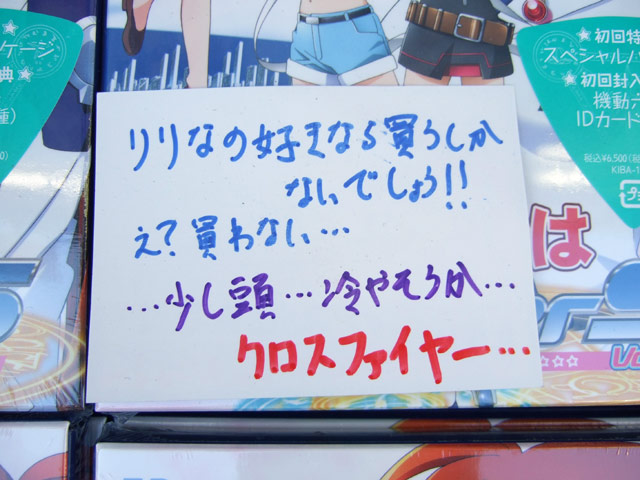 ッケージ
典
種)
初回特
スペシャルパ
初回封入
機動六
IDカード
税込¥6,500(税
KIBA-1
リリなの好きなら買うしか
ないでしょう!!
え?買わない…
…少し頭…冷やそうか…
クロスファイヤー…
は
er S
Vo